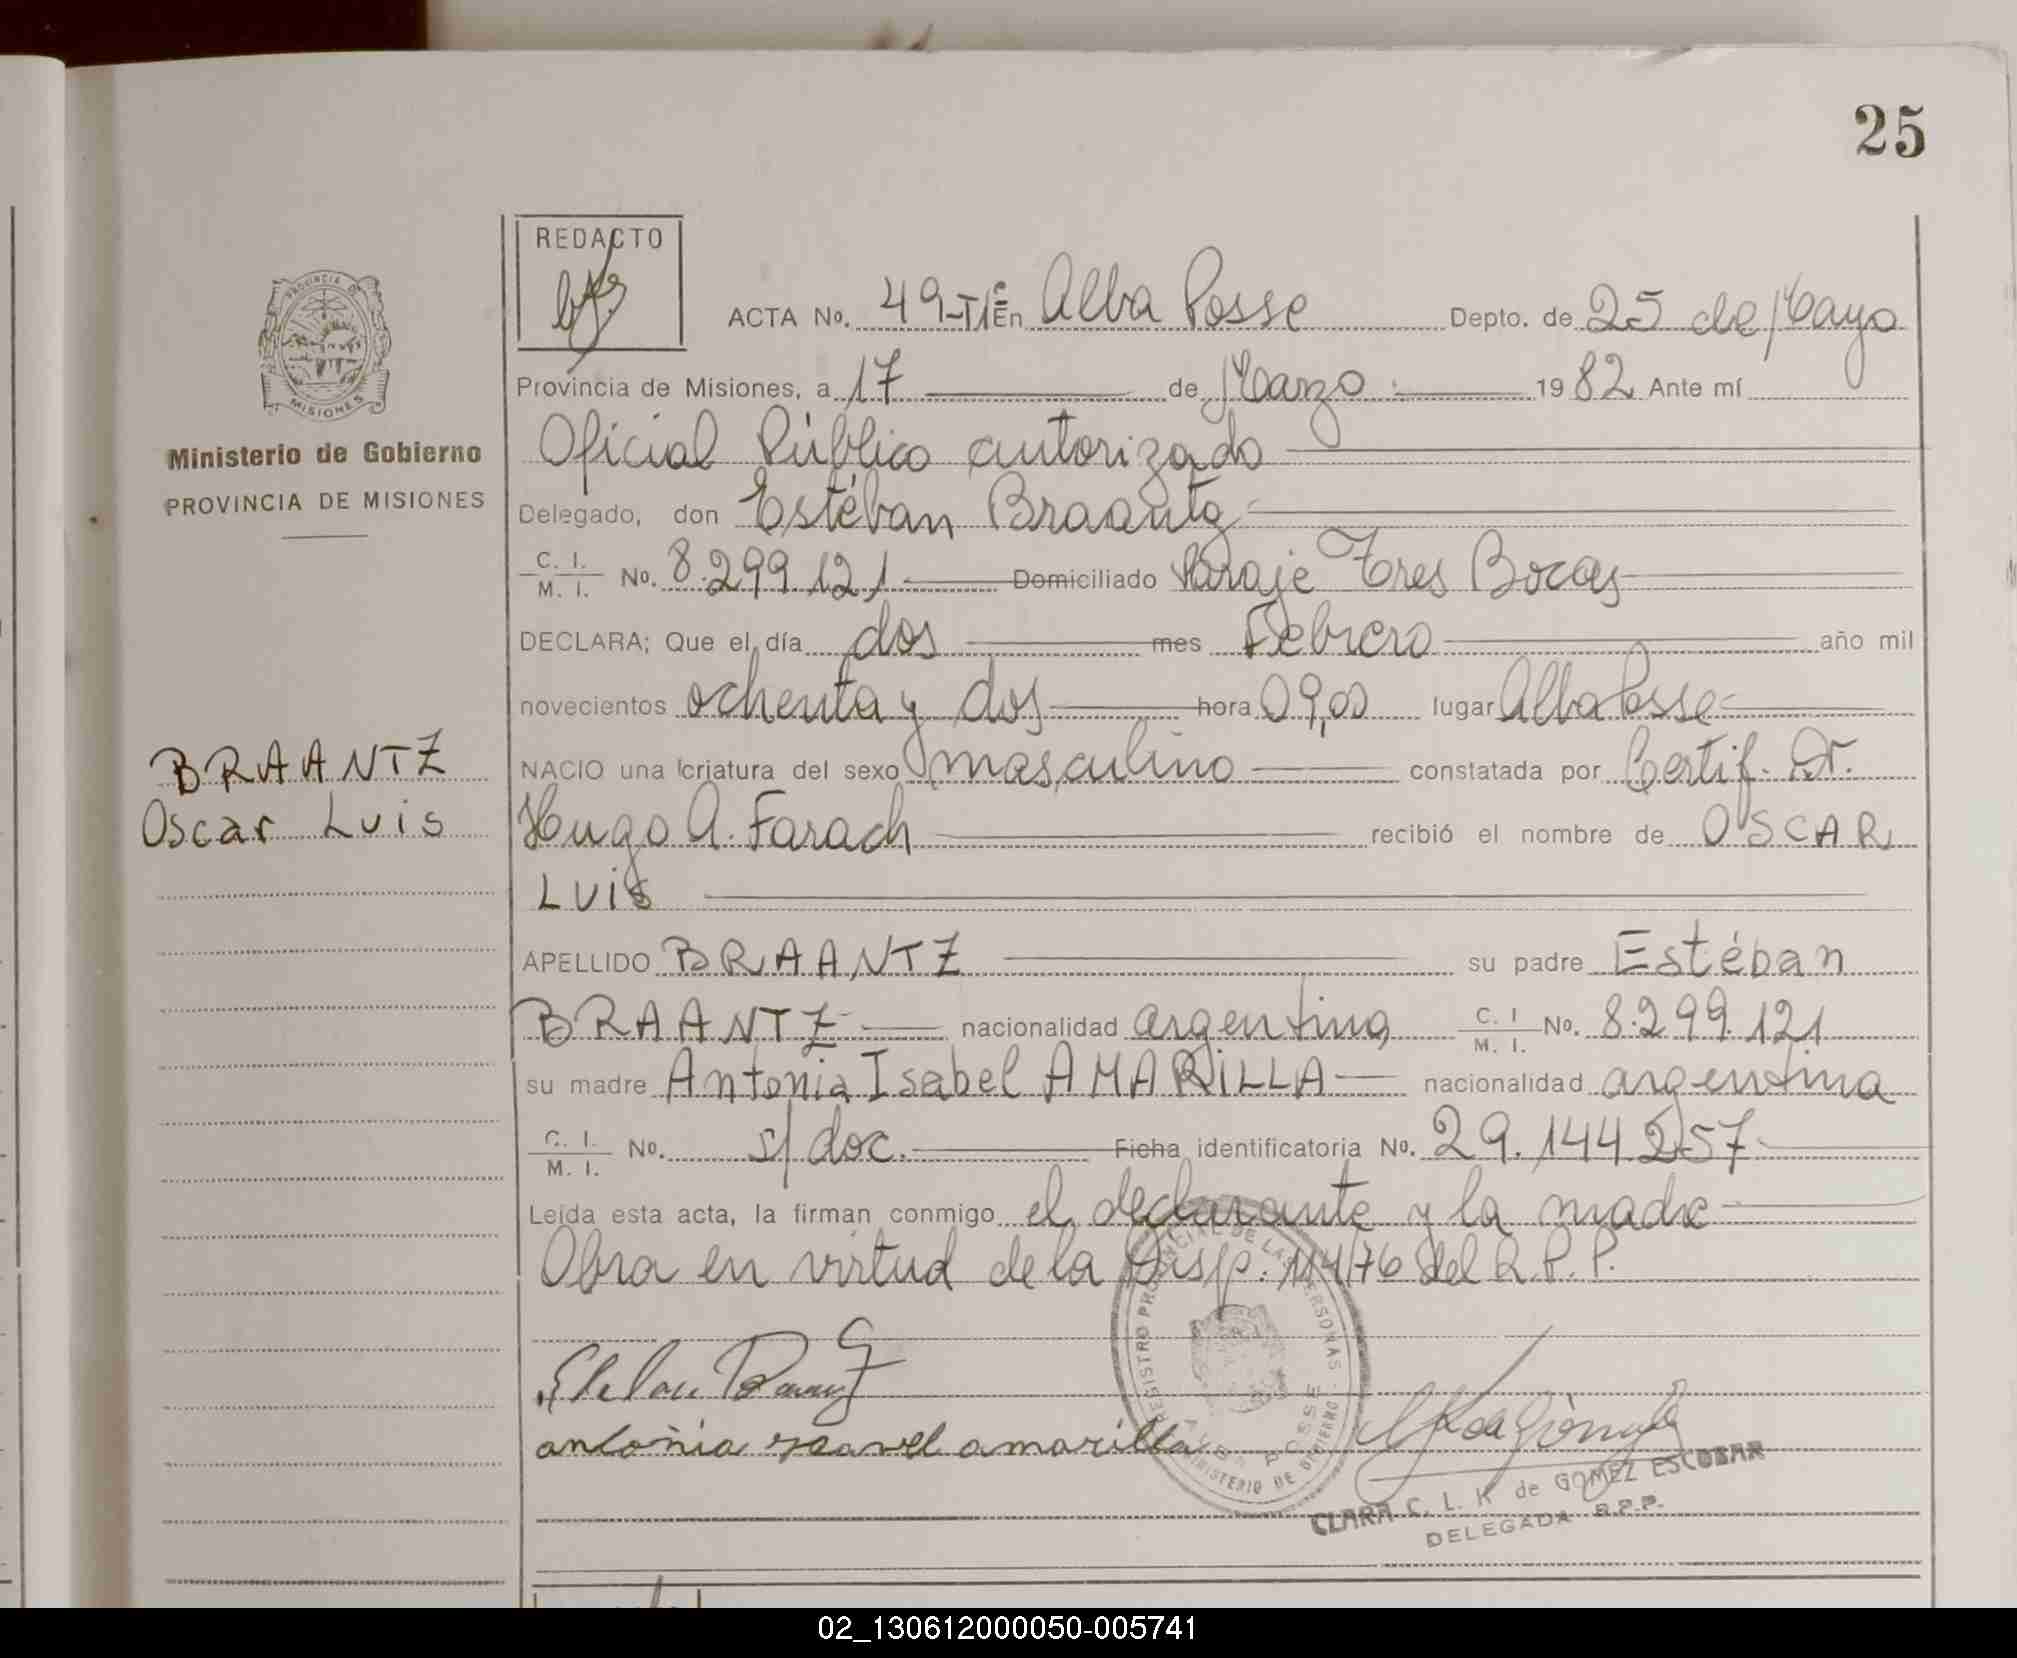 25
REDACTO
ACTA No. 49-TIº En Alba Posse Depto. de 25 de Mayo
PROVINCIA DE
MISIONES
Provincia de Misiones, a 17 de Marzo 1982 Ante mí
Ministerio de Gobierno
PROVINCIA DE MISIONES
Oficial Público autorizado
Delegado, don Estéban Braantz
C. I. / M. I. No. 8.299.121 Domiciliado Paraje Tres Bocas
DECLARA; Que el día dos mes Febrero año mil
novecientos ochenta y dos hora 09,00 lugar Alba Posse
BRAANTZ
Oscar Luis
NACIO una criatura del sexo masculino constatada por Certif. Dr.
Hugo A. Farach recibió el nombre de OSCAR
LUIS
APELLIDO BRAANTZ su padre Estéban
BRAANTZ nacionalidad argentina C. I / M. I. No. 8.299.121
su madre Antonia Isabel AMARILLA nacionalidad argentina
C. I. / M. I. No. s/doc. Ficha identificatoria No. 29.144.257
Leida esta acta, la firman conmigo el declarante y la madre
Obra en virtud de la Disp. 114/76 del R.P.P.
REGISTRO PROVINCIAL DE LAS PERSONAS
ALBA POSSE
MINISTERIO DE GOBIERNO
antonia ysavel amarilla
CLARA C. L. K de GOMEZ ESCOBAR
DELEGADA R.P.P.
02_130612000050-005741